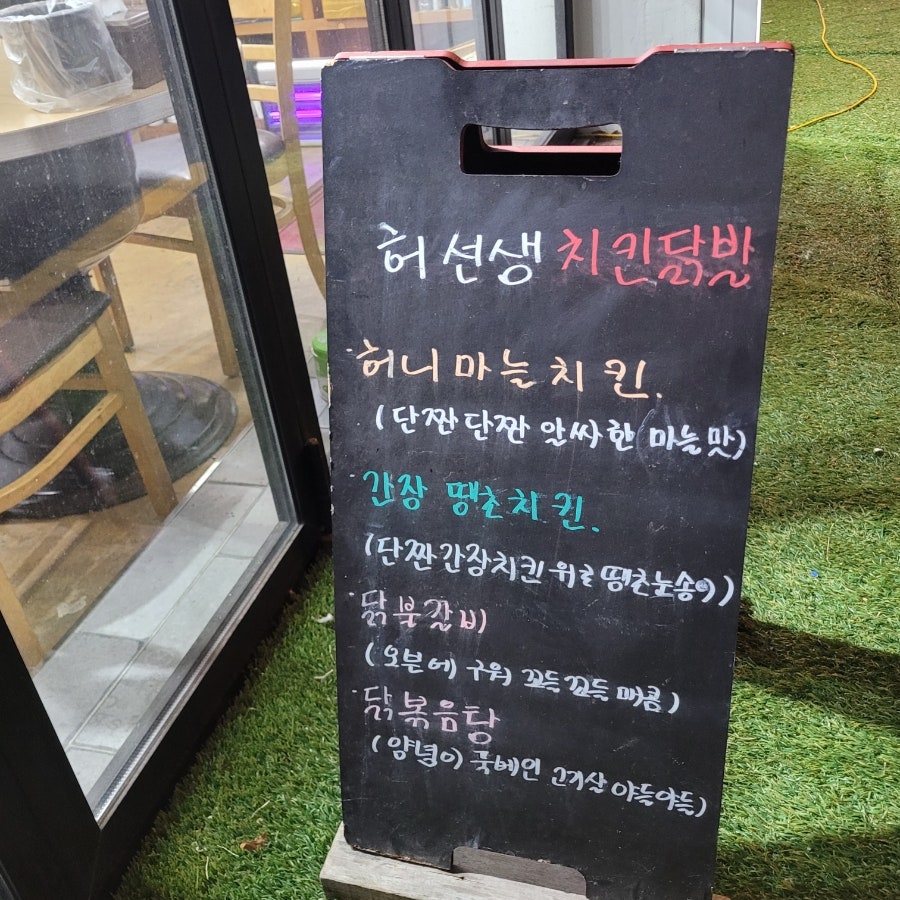 허선생 치킨닭발
허니마늘치킨.
(단짠단짠 알싸한 마늘맛)
간장 땡초치킨.
(단짠간장치킨 위로 땡초눈송이)
닭분갈비
(오븐에 구워 꼬들꼬들 매콤)
닭볶음탕
(양념이 푹베인 고기살 야들야들)